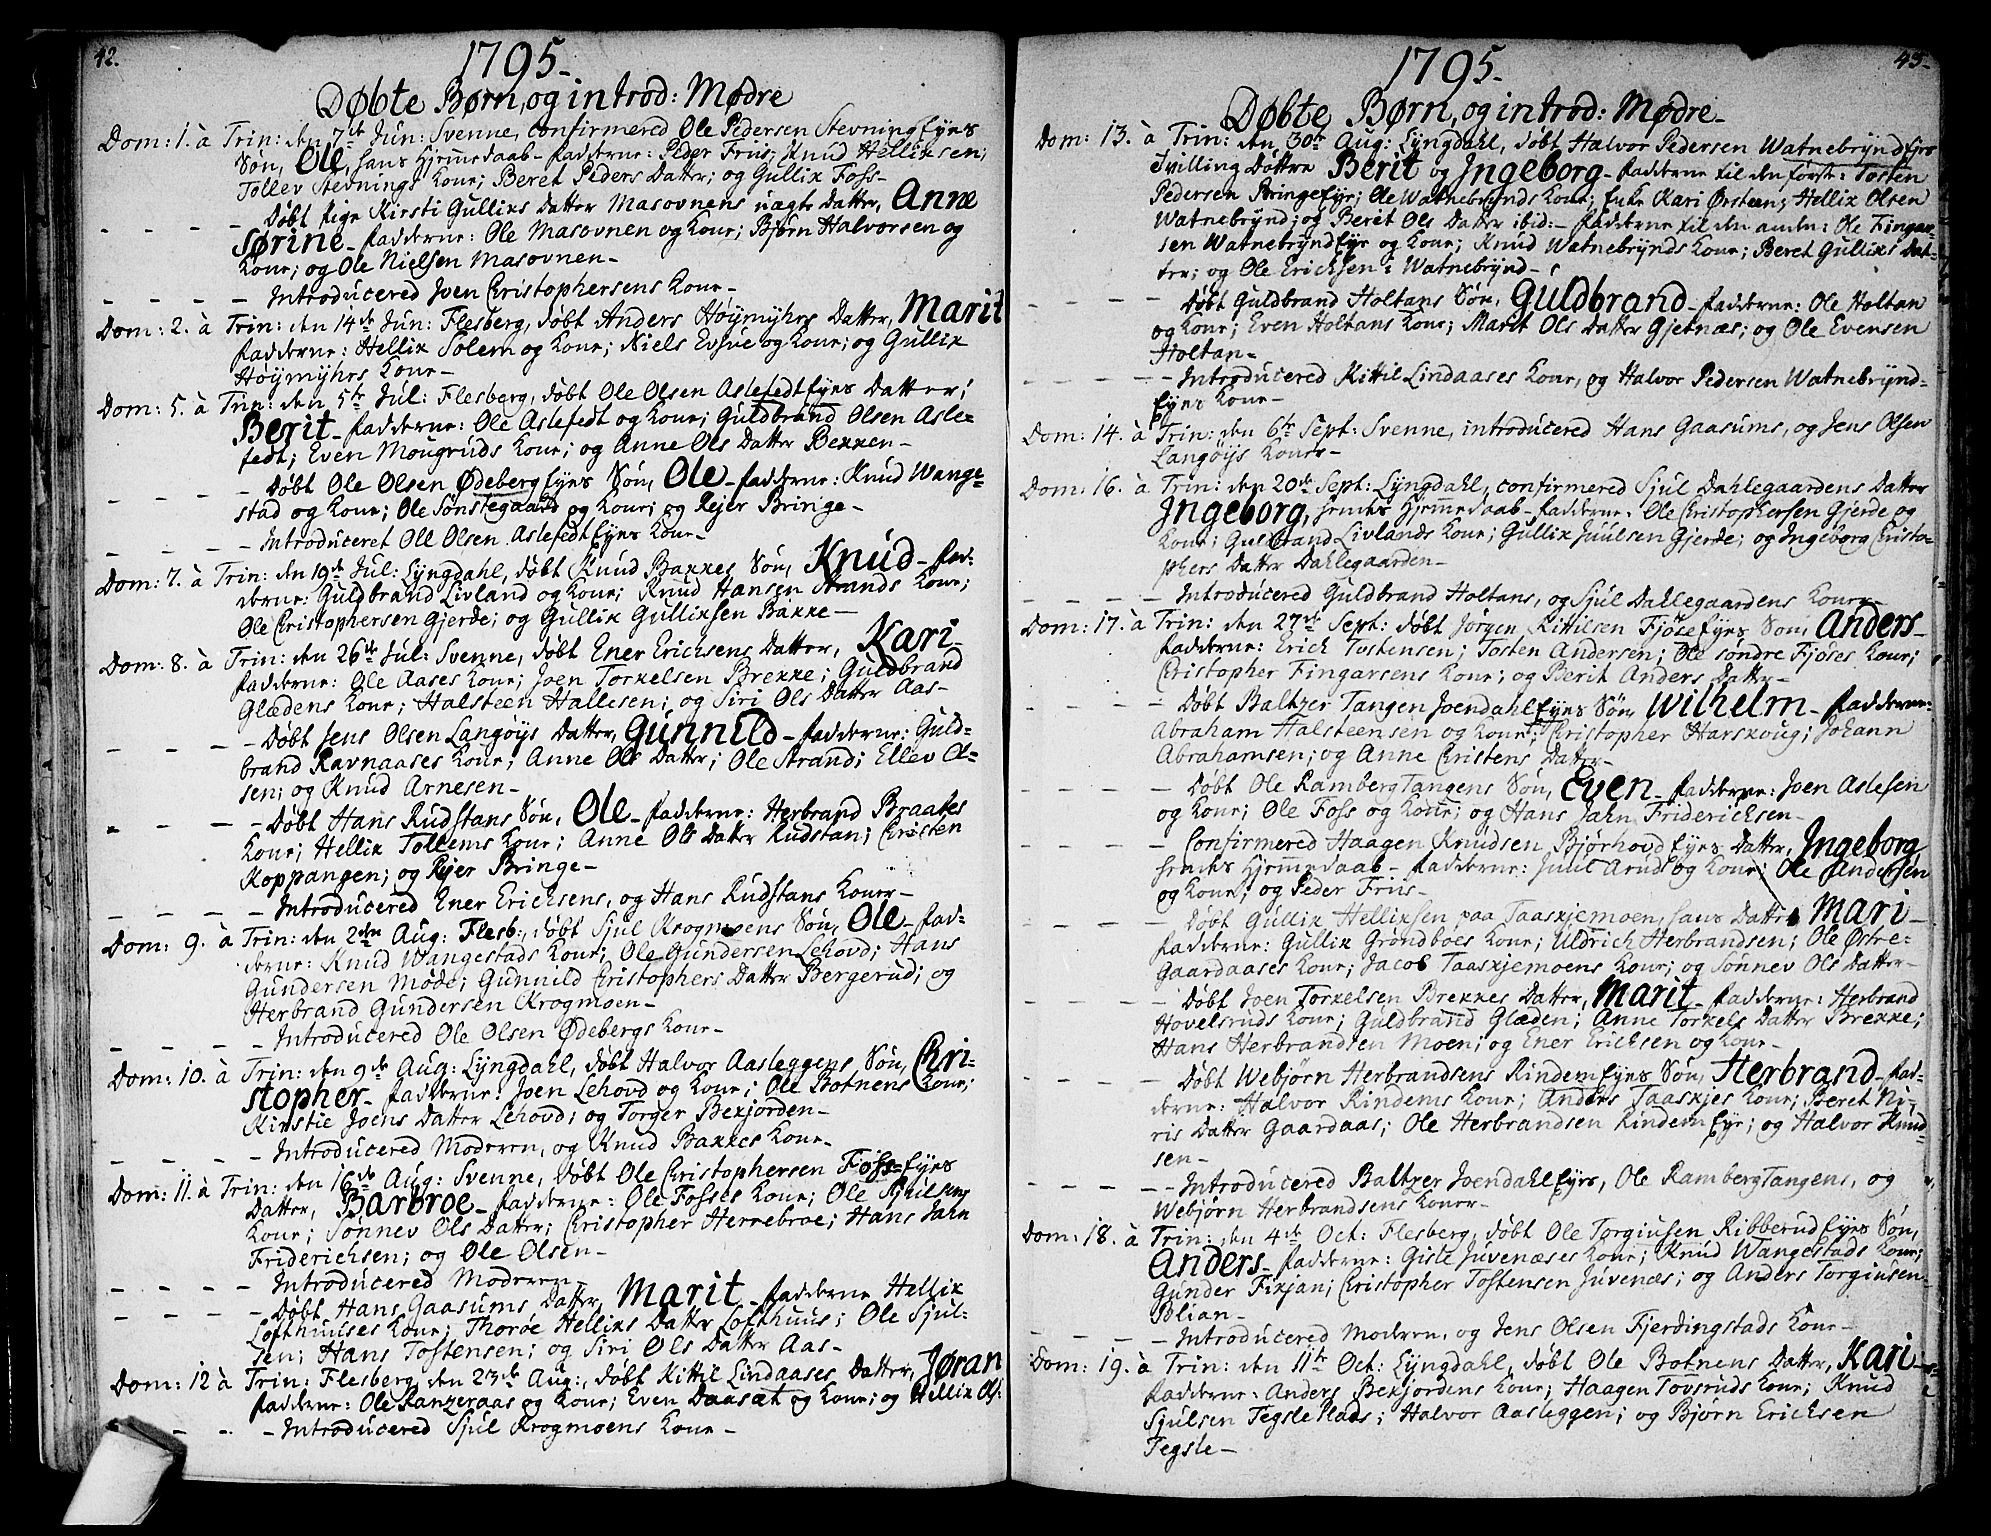 42.
1795.
Døbte Børn, og introd: Mødre
Dom: 1. à Trin: den 7de Jun: Svenne, confirmered Ole Pedersen Stevningsejes
Søn, Ole, hans Hjemmedaab - Fadderne: Peder Friis; Knud Hellixsen;
Tollev Stevnings Kone; Beret Peders Datter; og Gullix Foss-
- - - - Døbt Pige Kirsti Gullixs Datter Masovnens uægte Datter, Anne
Sørine - Fadderne: Ole Masovnen og Kone; Bjørn Halvorsen og
Kone; og Ole Nielsen Masovnen-
- - - - Introducered Joen Christophersens Kone-
Dom: 2. à Trin: den 14de Jun: Flesberg, døbt Anders Høymyhrs Datter, Marit
Fadderne: Hellix Solem og Kone; Niels Evjue og Kone; og Gullix
Høymyhrs Kone-
Dom: 5. à Trin: den 5te Jul: Flesberg, døbt Ole Olsen Aslefedtejes Datter,
Berit - Fadderne: Ole Aslefedt og Kone; Guldbrand Olsen Asle-
fedt; Even Mougruds Kone; og Anne Ols Datter Bekken-
- - - - Døbt Ole Olsen Ødebergejes Søn, Ole - Fadderne: Knud Wange-
stad og Kone; Ole Sønstegaard og Kone; og Rejer Bringe-
- - - - Introduceret Ole Olsen Aslefedtejes Kone-
Dom: 7. à Trin: den 19de Jul: Lyngdahl, døbt Knud Bakkes Søn, Knud - Fad-
derne: Guldbrand Livland og Kone; Knud Hansen Strands Kone;
Ole Christophersen Gjerde; og Gullix Gullixsen Bakke-
Dom: 8. à Trin: den 26de Jul: Svenne, døbt Ener Ericksens Datter, Kari-
Fadderne: Ole Aases Kone; Joen Torkelsen Brekke; Guldbrand
Glædens Kone; Halsteen Hallesen; og Siri Ols Datter Aas-
- - - - Døbt Jens Olsen Langøys Datter, Gunnild - Fadderne: Guld-
brand Ravnaases Kone; Anne Ols Datter; Ole Strand; Ellev Ol-
sen; og Knud Arnesen-
- - - - Døbt Hans Rudstans Søn, Ole - Fadderne: Herbrand Braates
Kone; Hellix Tollems Kone; Anne Ols Datter Rudstan; Christen
Koppangen; og Rejer Bringe-
- - - - Introducered Ener Ericksens, og Hans Rudstans Koner-
Dom: 9. à Trin: den 2den Aug: Flesb:, døbt Sjul Krogmoens Søn, Ole - Fad-
derne: Knud Wangestads Kone; Ole Gundersen Lehovd; Hans
Gundersen Møde; Gunnild Christophers Datter Bergerud; og
Herbrand Gundersen Krogmoen-
- - - - Introducered Ole Olsen Ødebergs Kone-
Dom: 10. à Trin: den 9de Aug: Lyngdahl, døbt Halvor Aasleggens Søn, Chri-
stopher - Fadderne: Joen Lehovd og Kone; Ole Botnens Kone;
Kirstie Joens Datter Lehovd; og Torger Bekjorden-
- - - - Introducered Moderen, og Knud Bakkes Kone-
Dom: 11. à Trin: den 16de Aug: Svenne, døbt Ole Christophersen Foss-ejes
Datter, Barbroe - Fadderne: Ole Fosses Kone; Ole
Kone; Sønnev Ols Datter; Christopher Herrebroe; Hans Jahn
Friderichsen; og Ole Olsen-
- - - - Introducered Moderen-
- - - - Døbt Hans Gaasums Datter, Marit - Fadderne Hellix
Lofthuuses Kone; Thoroe Hellixs Datter Lofthuus; Ole Sjul-
sen; Hans Tostensen; og Siri Ols Datter Aas-
Dom: 12 à Trin: Flesberg, den 23de Aug:, døbt Kittil Lindaases Datter, Jøran
Fadderne: Ole Ranzeraas og Kone; Even Daasæt og Kone; og Hellix Ols:
- - - Introducered Sjul Krogmoens Kone-
43.
1795.
Døbte Børn, og introd: Mødre-
Dom: 13. à Trin: den 30te Aug: Lyngdahl, døbt Halvor Pedersen Watnebryndejes
Tvilling Døttre Berit og Ingeborg - Fadderne til den første: Tosten
Pedersen Bringeeje; Ole Watnebrynds Kone; Enke Kari Ørsteen; Hellix Olsen
Watnebrynd; og Beret Ols Datter ibid:- Fadderne til den anden: Ole Fingar-
sen Watnebryndeje og Kone; Knud Watnebrynds Kone; Beret Gullixs Dat-
ter; og Ole Ericksen i Watnebrynd-
- - - - Døbt Guldbrand Holtans Søn, Guldbrand - Fadderne: Ole Holtan
og Kone; Even Holtans Kone; Marit Ols Datter Gjetnæs; og Ole Evensen
Holtan-
- - - - Introducered Kittil Lindaases Kone, og Halvor Pedersen Watnebrynd-
ejes Kone-
Dom: 14. à Trin: den 6te Sept: Svenne, introducered Hans Gaasums, og Jens Olsen
Langøys Koner-
Dom: 16. à Trin: den 20de Sept: Lyngdahl, confirmered Sjul Dahlegaardens Datter
Ingeborg, hendes Hjemmedaab - Fadderne: Ole Christophersen Gjerde og
Kone; Guldbrand Livlands Kone; Gullix Juulsen Gjerde; og Ingeborg Christo-
phers Datter Dahlegaarden-
- - - - Introducered Guldbrand Holtans, og Sjul Dahlegaardens Koner-
Dom: 17. à Trin: den 27de Sept: døbt Jørgen Kittilsen Fjøseejes Søn, Anders-
Fadderne: Erich Tostensen; Tosten Andersen; Ole søndre Fjøses Kone;
Christopher Fingarsens Kone; og Berit Anders Datter-
- - - - Døbt Baltzer Tangen Joendahlejes Søn, Wilhelm - Fadderne:
Abraham Halsteensen og Kone; Christopher Harskoug; Johann
Abrahamsen; og Anne Christens Datter-
- - - - Døbt Ole RambergTangens Søn, Even - Fadderne: Joen Aslesen
og Kone; Ole Foss og Kone; og Hans Jahn Friderichsen-
- - - - Confirmered Haagen Knudsen Bjørhovdejes Datter, Ingeborg
hendes Hjemmedaab - Fadderne: Juul Aruds og Kone; Ole Andersen
og Kone; og Peder Friis-
- - - - Døbt Gullix Hellixsen paa Taaskjemoen, hans Datter Mari-
Fadderne: Gullix Grøndboes Kone; Uldrich Herbrandsen; Ole Østre-
Gaardaases Kone; Jacob Taaskjemoens Kone; og Sønnev Ols Datter-
- - - - Døbt Joen Torkelsen Brekkes Datter, Marit - Fadderne: Herbrand
Hovelsruds Kone; Guldbrand Glæden; Anne Torkels Datter Brekke;
Hans Herbrandsen Moen; og Ener Ericksen og Kone-
- - - - Døbt Webjørn Herbrandsens Rindemejes Søn, Herbrand - Fad-
derne: Halvor Rindems Kone; Anders Taaskjes Kone; Beret Ni-
ris Datter Gaardaas; Ole Herbrandsen Rindemeje; og Halvor Knud-
sen-
- - - - Introducered Baltzer Joendahlejes, Ole RambergTangens, og
Webjørn Herbrandsens Koner-
Dom: 18. à Trin: den 4de Oct: Flesberg, døbt Ole Torgiusen Ribberudejes Søn,
Anders - Fadderne: Gisle Juvenæses Kone; Knud Wangestads Kone;
Gunder Fixjan; Christopher Tostensen Juvenæs; og Anders Torgiusen
Blian-
- - - - Introducered Moderen, og Jens Olsen Fjerdingstads Kone-
Dom: 19. à Trin: den 11te Oct: Lyngdahl, døbt Ole Botnens Datter, Kari-
Fadderne: Anders Bekjordens Kone; Haagen Tovsruds Kone; Knud
Sjulsen Tegsle Plads; Halvor Aasleggen; og Bjørn Ericksen
Tegsle-